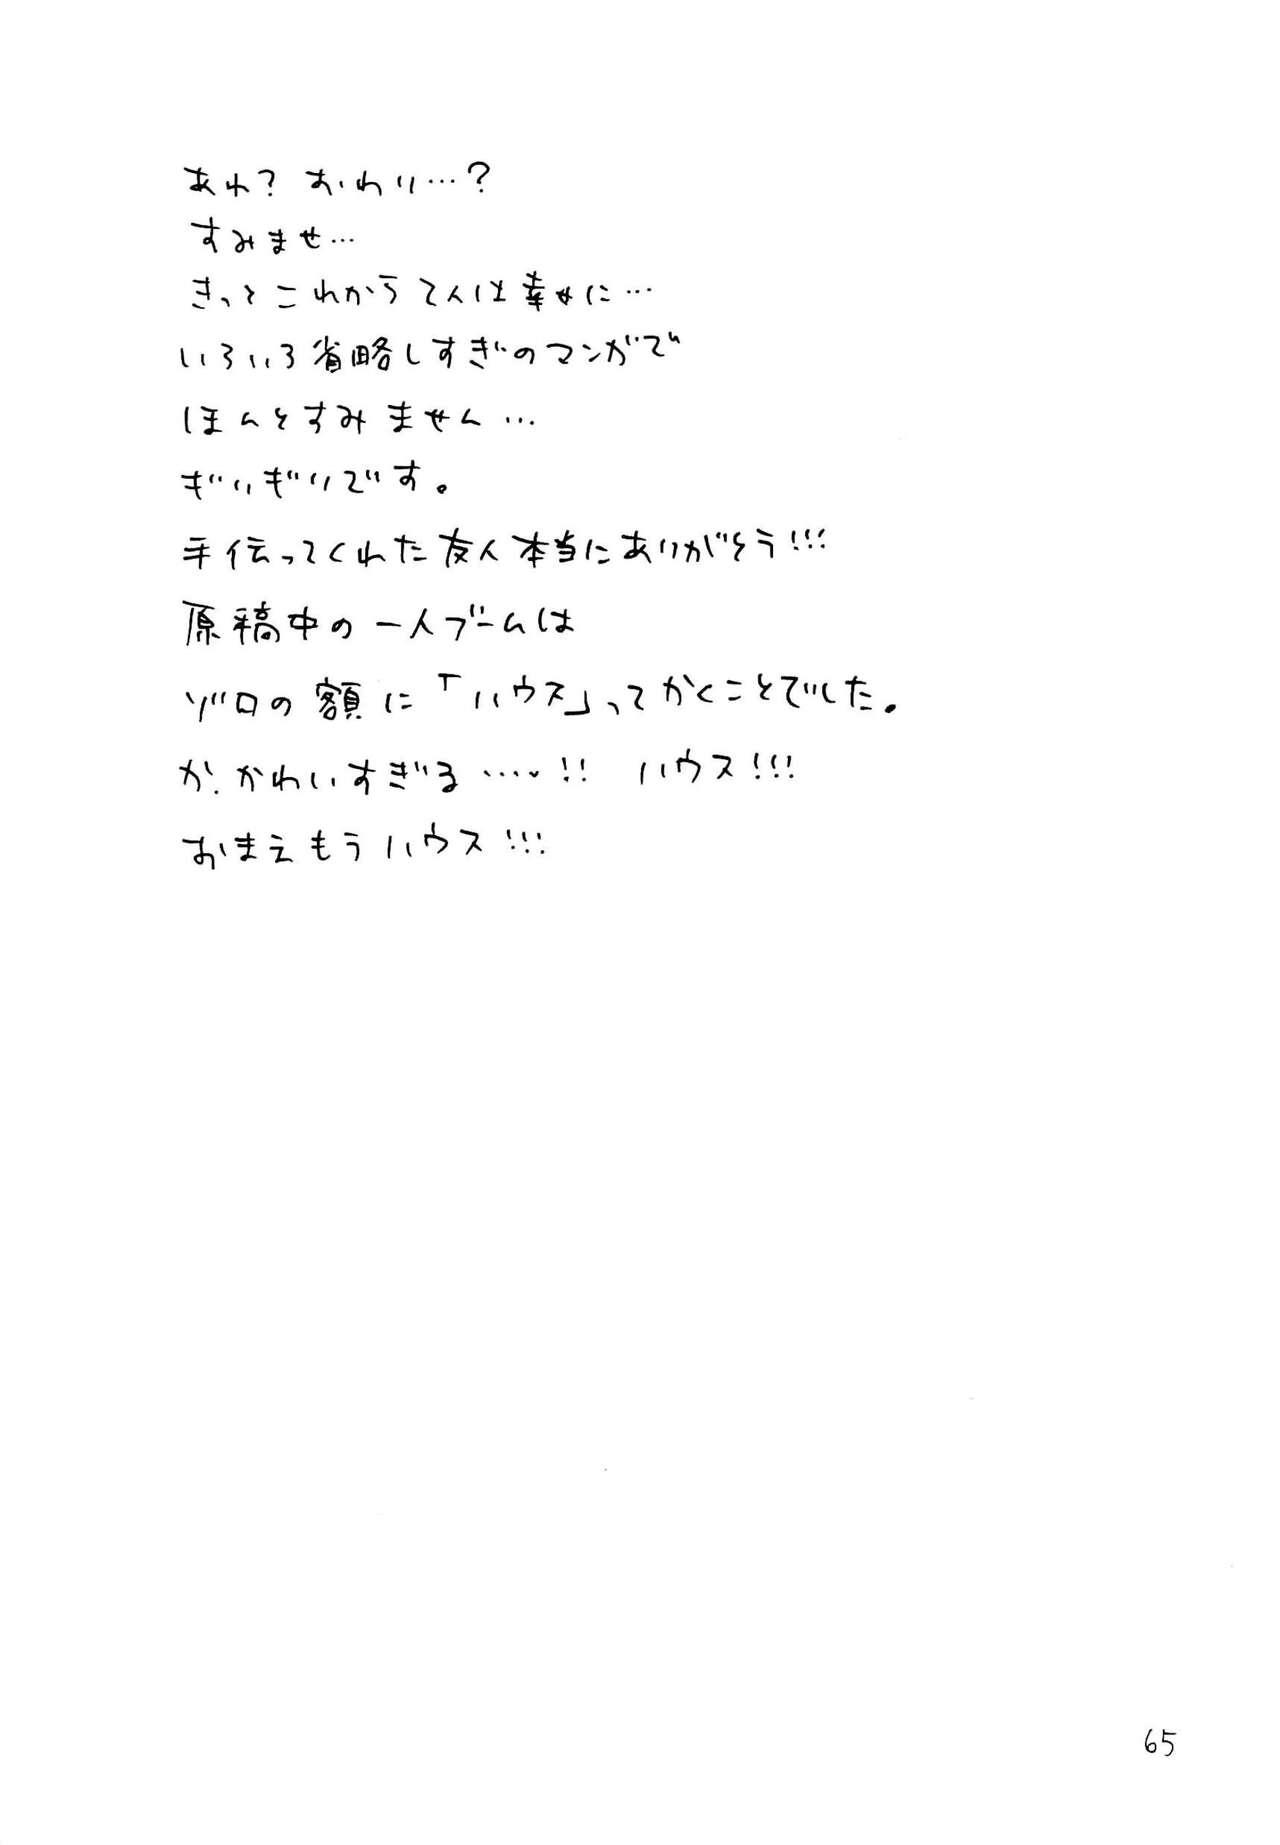 あれ？おわり…？
すみませ…
きっとこれから2人は幸せに…
いろいろ省略しすぎのマンガで
ほんとすみません…
ぎりぎりです。
手伝ってくれた友人本当にありがとう!!!
原稿中の一人ブームは
ゾロの額に「ハウス」ってかくことでした。
か、かわいすぎる……!! ハウス!!!
おまえもうハウス!!!
65